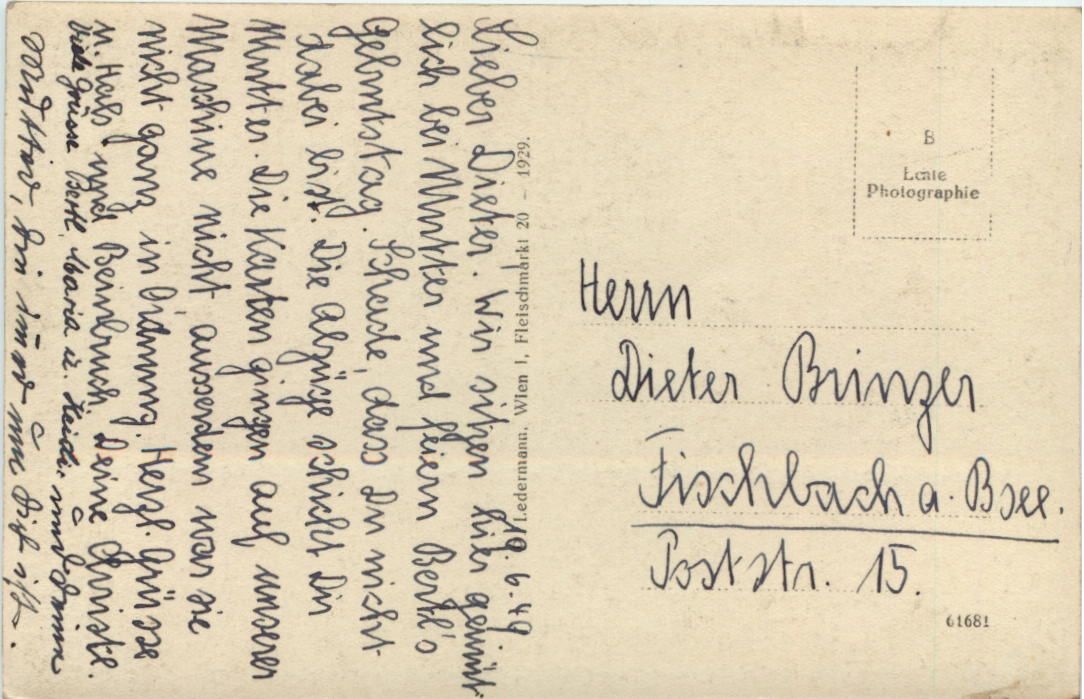 19.6.49
Lieber Dieter. Wir sitzen hier gemüt-
lich bei Mutter und feiern Bertl's
Geburtstag. Schade, dass Du nicht
dabei bist. Die Abzüge schickt Dir
Mutter. Die Karten gingen auf unserer
Maschine nicht, ausserdem war sie
nicht ganz in Ordnung. Herzl. Grüsse
u. Hals und Beinbruch Deine Christl.
Viele Grüsse Bertl, Maria u. Heidi. und Deine
die immer um Dich ist.
Ledermann, Wien I, Fleischmarkt 20 – 1929.
B
Echte
Photographie
Herrn
Dieter Brinzer
Fischbach a. Bsee.
Poststr. 15.
61681